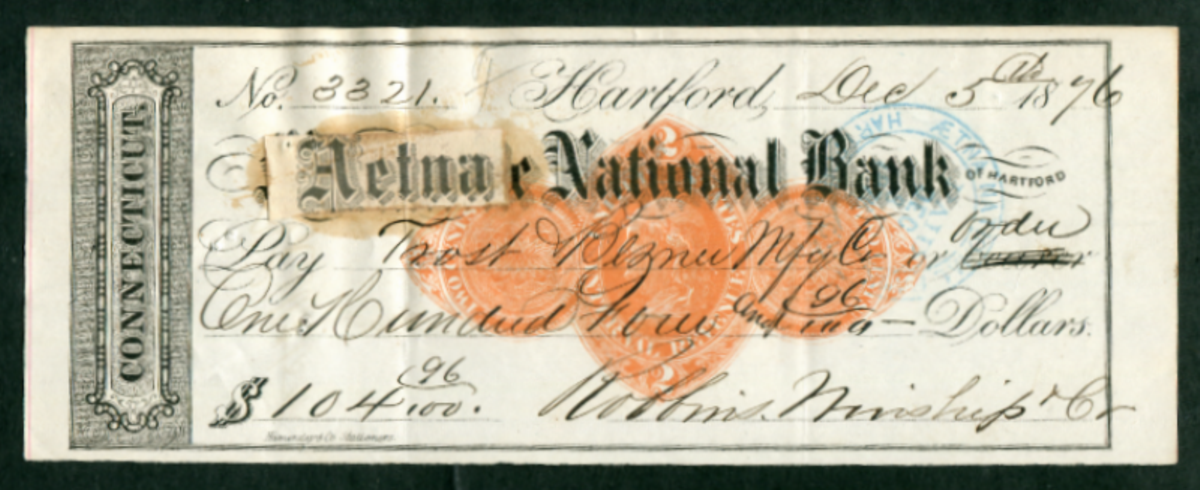 CONNECTICUT.
No. 3321. Hartford, Dec 5th 1876
Aetna e National Bank OF HARTFORD
Pay Trost & Bezner Mfg Co or order bearer
One Hundred Four and 96/100 Dollars.
$ 104 96/100. Robbins. Winship & Co
2
2